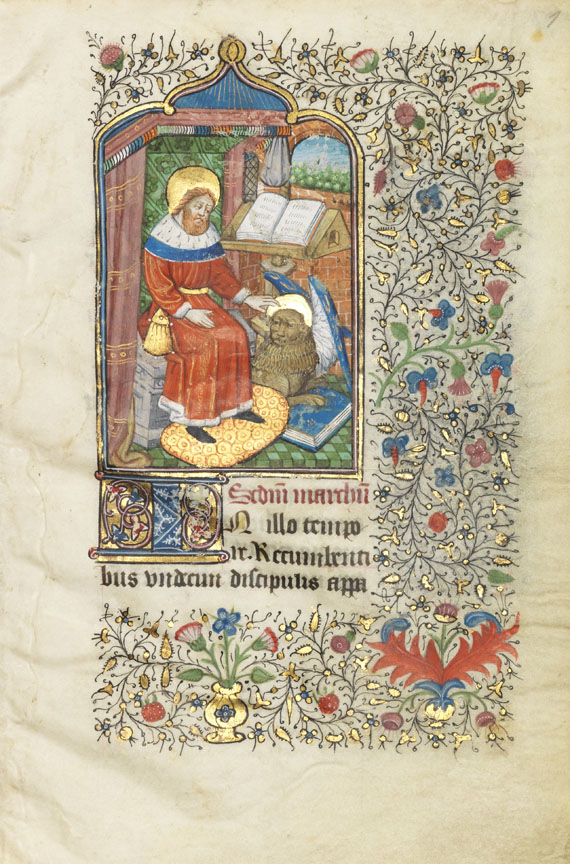 Scdm marchum
IN illo tempo
re. Recumbenti
bus vndecim discipulis appa